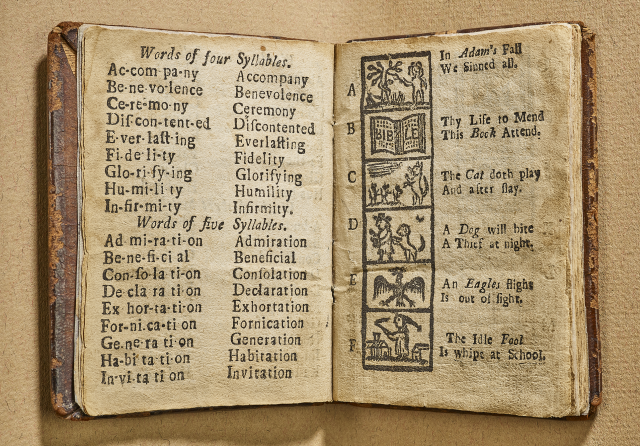 Words of four Syllables.
Ac-com-pa-ny Accompany
Be-ne-vo-lence Benevolence
Ce-re-mo-ny Ceremony
Diſ-con-tent-ed Diſcontented
E-ver-laſt-ing Everlaſting
Fi-de-li-ty Fidelity
Glo-ri-fy-ing Glorifying
Hu-mi-li-ty Humility
In-fir-mi-ty Infirmity.
Words of five Syllables.
Ad mi-ra-ti-on Admiration
Be-ne-fi-ci al Beneficial
Con-ſo-la-ti-on Conſolation
De-cla ra ti on Declaration
Ex hor-ta-ti-on Exhortation
For-ni-ca-ti on Fornication
Ge-ne-ra ti on Generation
Ha-bi ta ti on Habitation
In-vi-ta ti on Invitation
A
In Adam's Fall
We Sinned all.
B
BIBLE
Thy Life to Mend
This Book Attend.
C
The Cat doth play
And after ſlay.
D
A Dog will bite
A Thief at night.
E
An Eagles flight
Is out of ſight.
F
The Idle Fool
Is whipt at School.